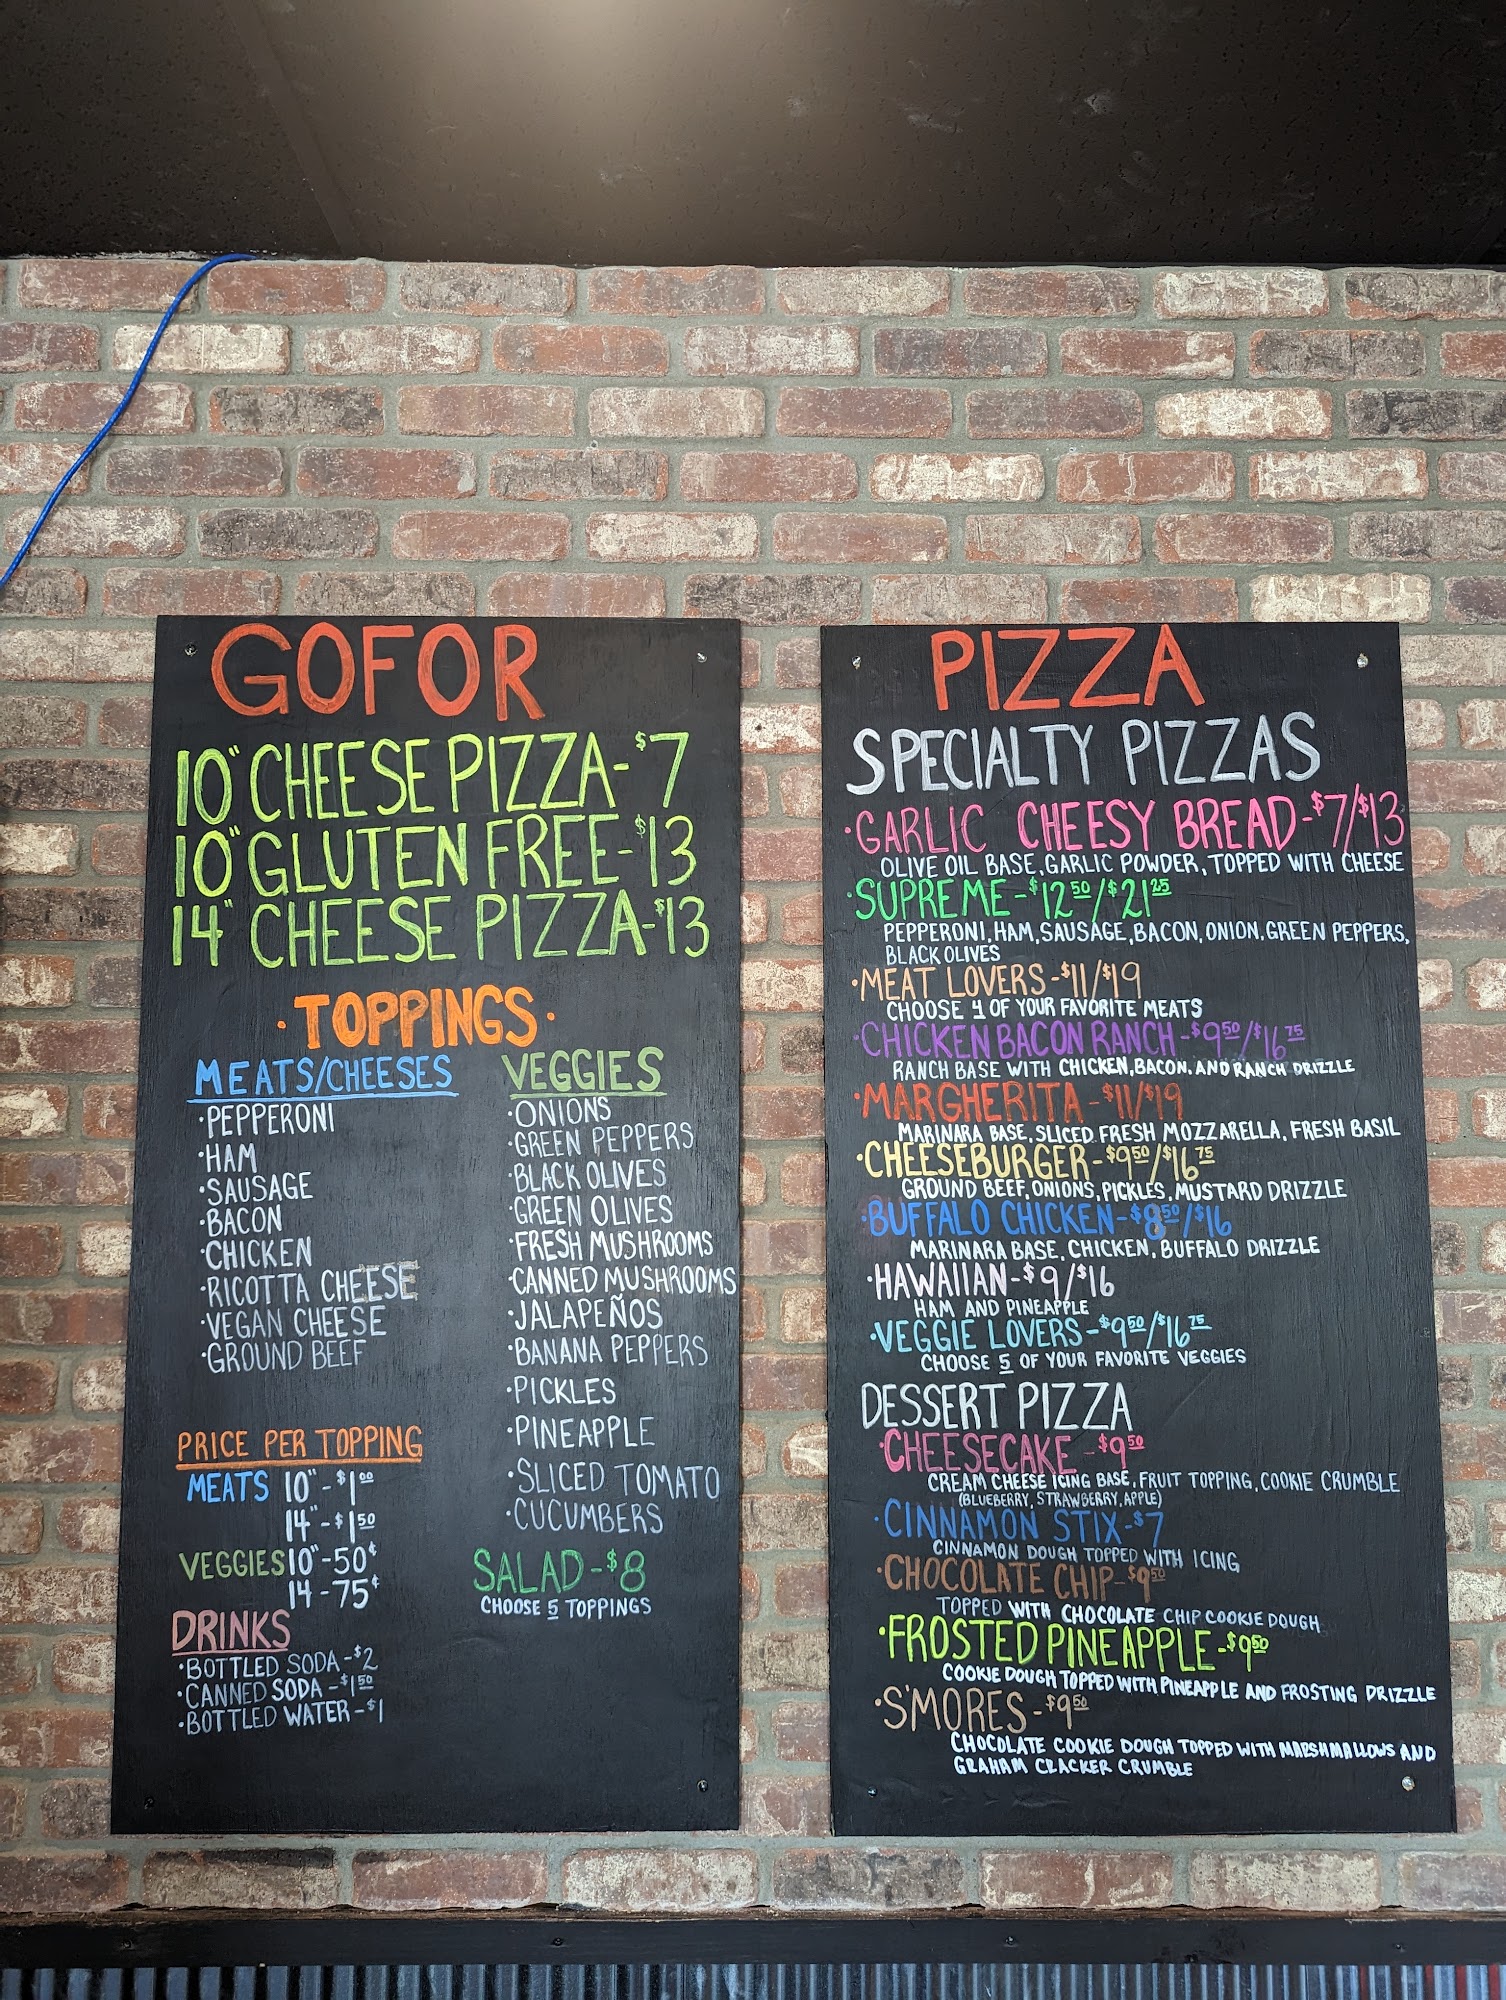 GOFOR
10" CHEESE PIZZA-$7
10" GLUTEN FREE-$13
14" CHEESE PIZZA-$13
·TOPPINGS·
MEATS/CHEESES
·PEPPERONI
·HAM
·SAUSAGE
·BACON
·CHICKEN
·RICOTTA CHEESE
·VEGAN CHEESE
·GROUND BEEF
VEGGIES
·ONIONS
·GREEN PEPPERS
·BLACK OLIVES
·GREEN OLIVES
·FRESH MUSHROOMS
·CANNED MUSHROOMS
·JALAPEÑOS
·BANANA PEPPERS
·PICKLES
·PINEAPPLE
·SLICED TOMATO
·CUCUMBERS
PRICE PER TOPPING
MEATS 10"-$1.00
14"-$1.50
VEGGIES 10"-50¢
14-75¢
DRINKS
·BOTTLED SODA-$2
·CANNED SODA-$1.50
·BOTTLED WATER-$1
SALAD-$8
CHOOSE 5 TOPPINGS
PIZZA
SPECIALTY PIZZAS
·GARLIC CHEESY BREAD-$7/$13
OLIVE OIL BASE, GARLIC POWDER, TOPPED WITH CHEESE
·SUPREME-$12.50/$21.25
PEPPERONI, HAM, SAUSAGE, BACON, ONION, GREEN PEPPERS,
BLACK OLIVES
·MEAT LOVERS-$11/$19
CHOOSE 4 OF YOUR FAVORITE MEATS
·CHICKEN BACON RANCH-$9.50/$16.75
RANCH BASE WITH CHICKEN, BACON, AND RANCH DRIZZLE
·MARGHERITA-$11/$19
MARINARA BASE, SLICED FRESH MOZZARELLA, FRESH BASIL
·CHEESEBURGER-$9.50/$16.75
GROUND BEEF, ONIONS, PICKLES, MUSTARD DRIZZLE
·BUFFALO CHICKEN-$8.50/$16
MARINARA BASE, CHICKEN, BUFFALO DRIZZLE
·HAWAIIAN-$9/$16
HAM AND PINEAPPLE
·VEGGIE LOVERS-$9.50/$16.75
CHOOSE 5 OF YOUR FAVORITE VEGGIES
DESSERT PIZZA
·CHEESECAKE-$9.50
CREAM CHEESE ICING BASE, FRUIT TOPPING, COOKIE CRUMBLE
(BLUEBERRY, STRAWBERRY, APPLE)
·CINNAMON STIX-$7
CINNAMON DOUGH TOPPED WITH ICING
·CHOCOLATE CHIP-$9.50
TOPPED WITH CHOCOLATE CHIP COOKIE DOUGH
·FROSTED PINEAPPLE-$9.50
COOKIE DOUGH TOPPED WITH PINEAPPLE AND FROSTING DRIZZLE
·S'MORES-$9.50
CHOCOLATE COOKIE DOUGH TOPPED WITH MARSHMALLOWS AND
GRAHAM CRACKER CRUMBLE